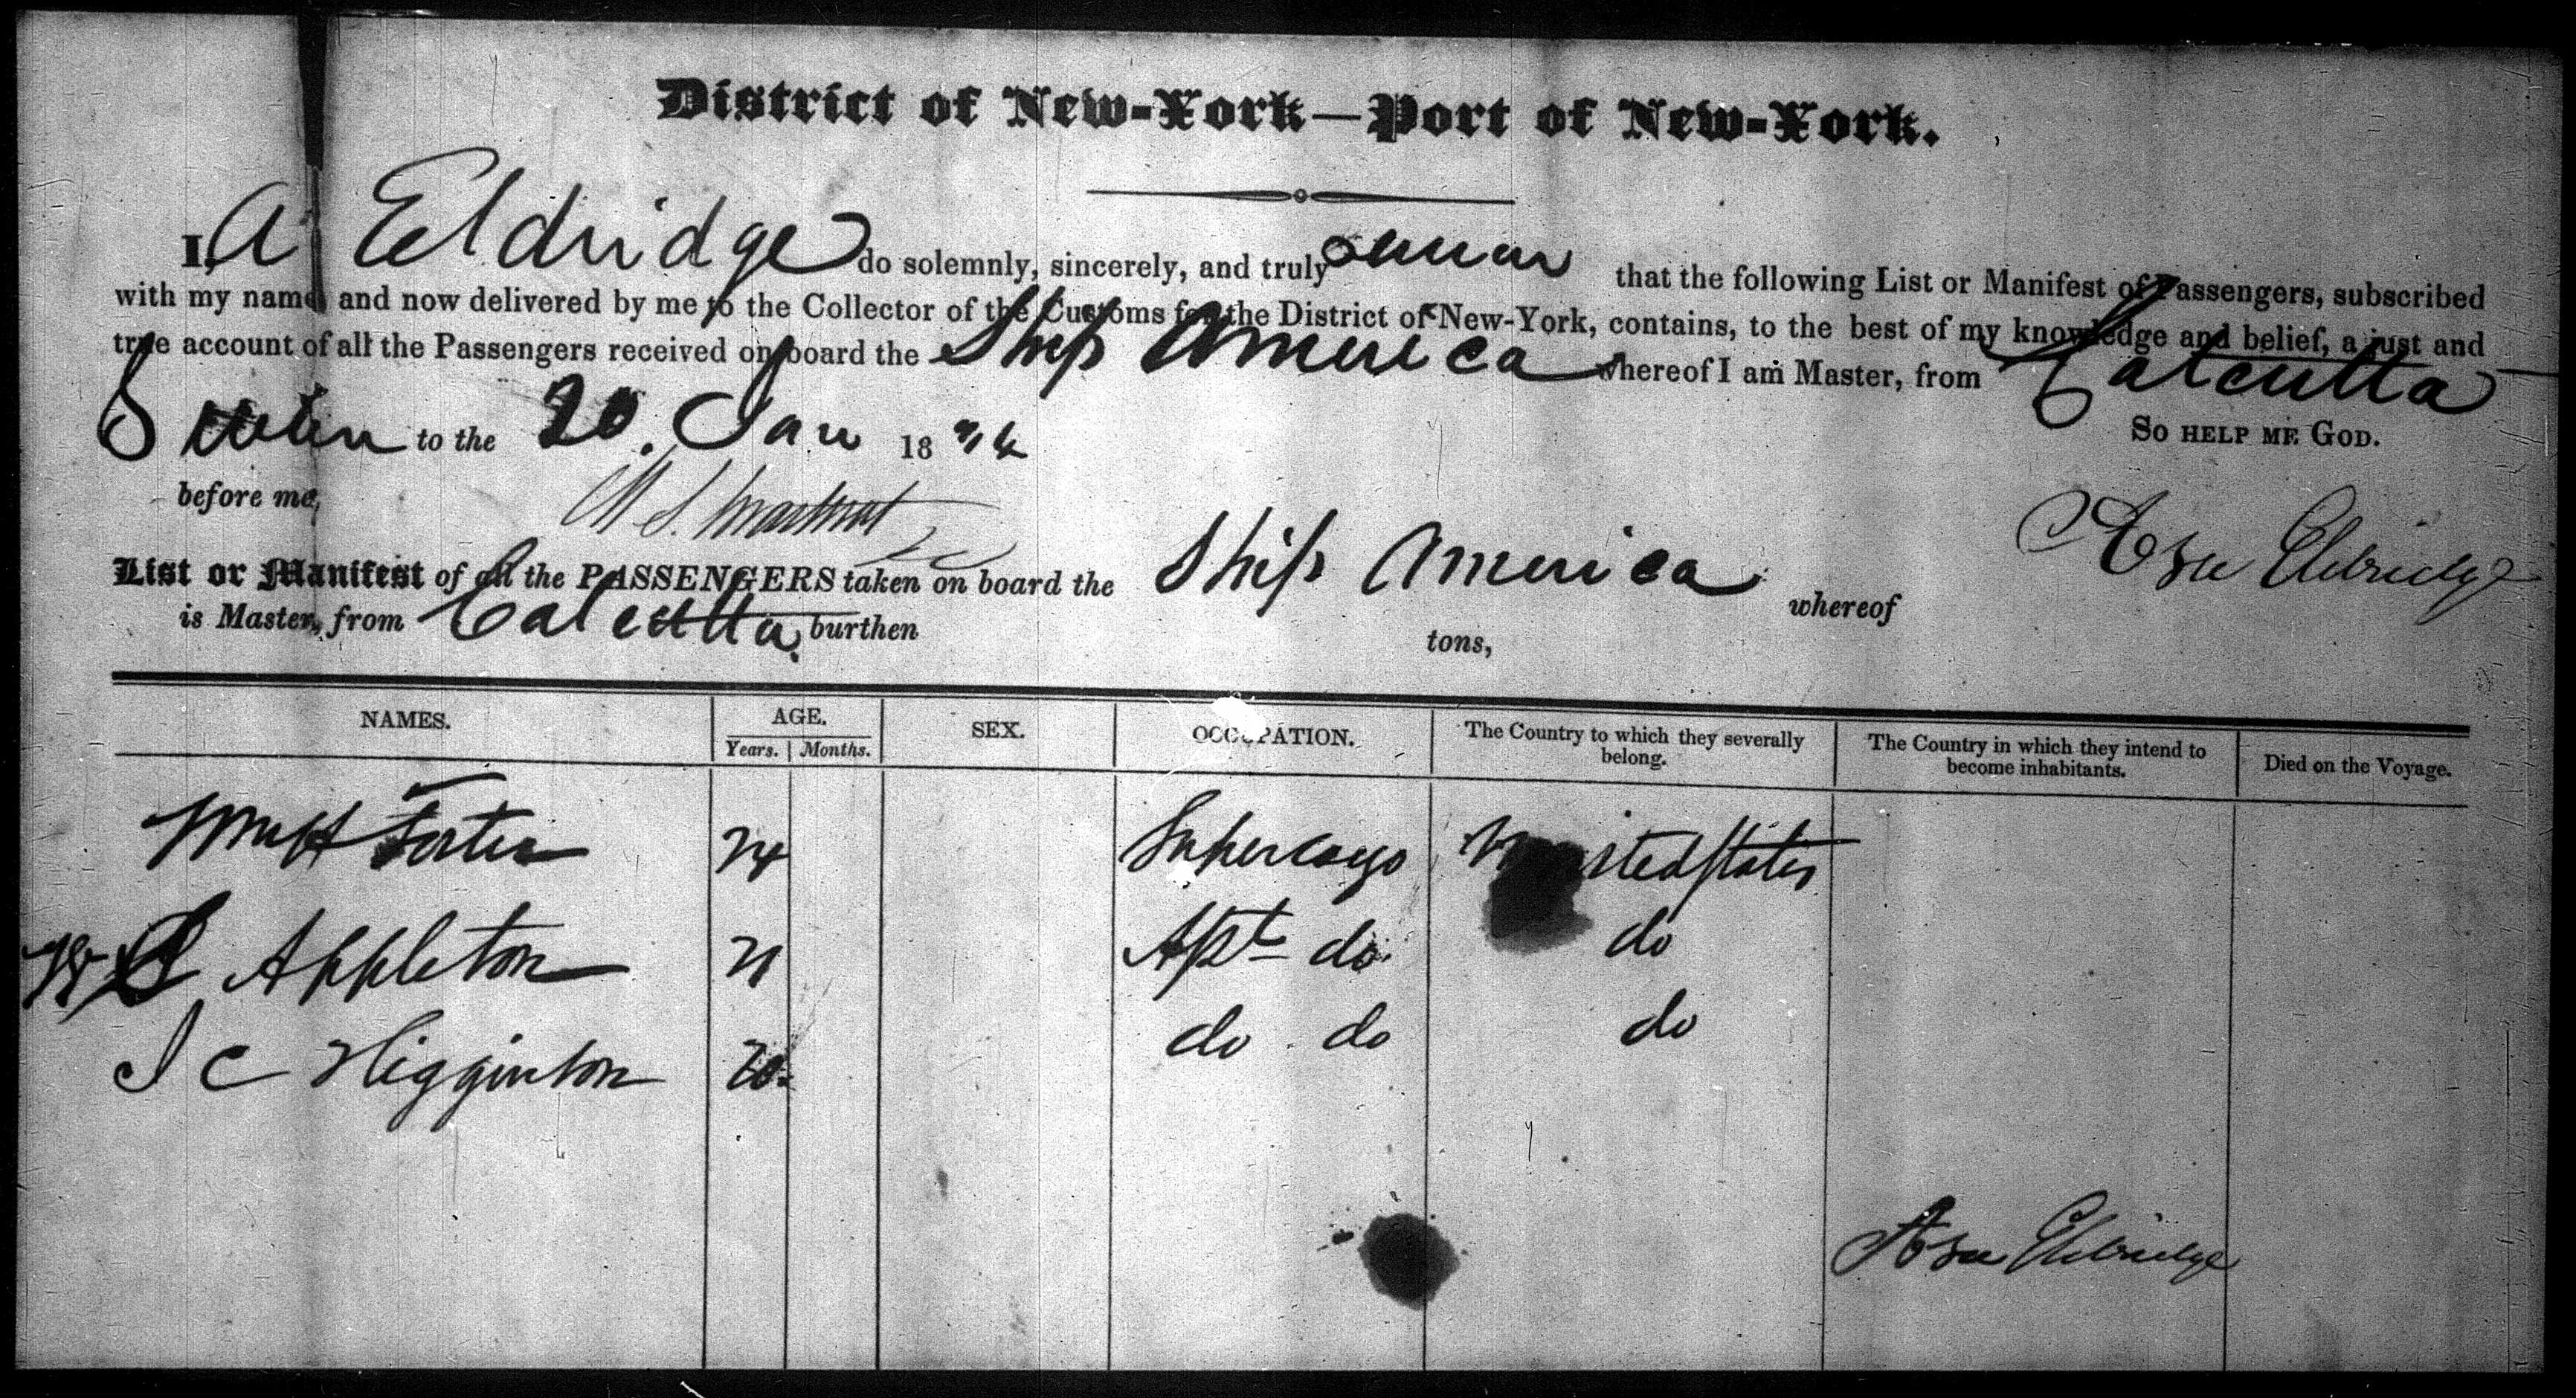 District of New-York—Port of New-York.
I, A Eldridge do solemnly, sincerely, and truly swear that the following List or Manifest of Passengers, subscribed
with my name, and now delivered by me to the Collector of the Customs for the District of New-York, contains, to the best of my knowledge and belief, a just and
true account of all the Passengers received on board the Ship America whereof I am Master, from Calcutta
Sworn to the 20. Jan 18
So help me God.
before me,
Asa Eldridge
List or Manifest of all the PASSENGERS taken on board the Ship America whereof
is Master, from Calcutta. burthen tons,
NAMES. AGE. SEX. OCCUPATION. The Country to which they severally belong. The Country in which they intend to become inhabitants. Died on the Voyage.
Years. Months.
24 Supercargo United States
Appleton 21 do. do
J C Higginson 20 do do do
Asa Eldridge